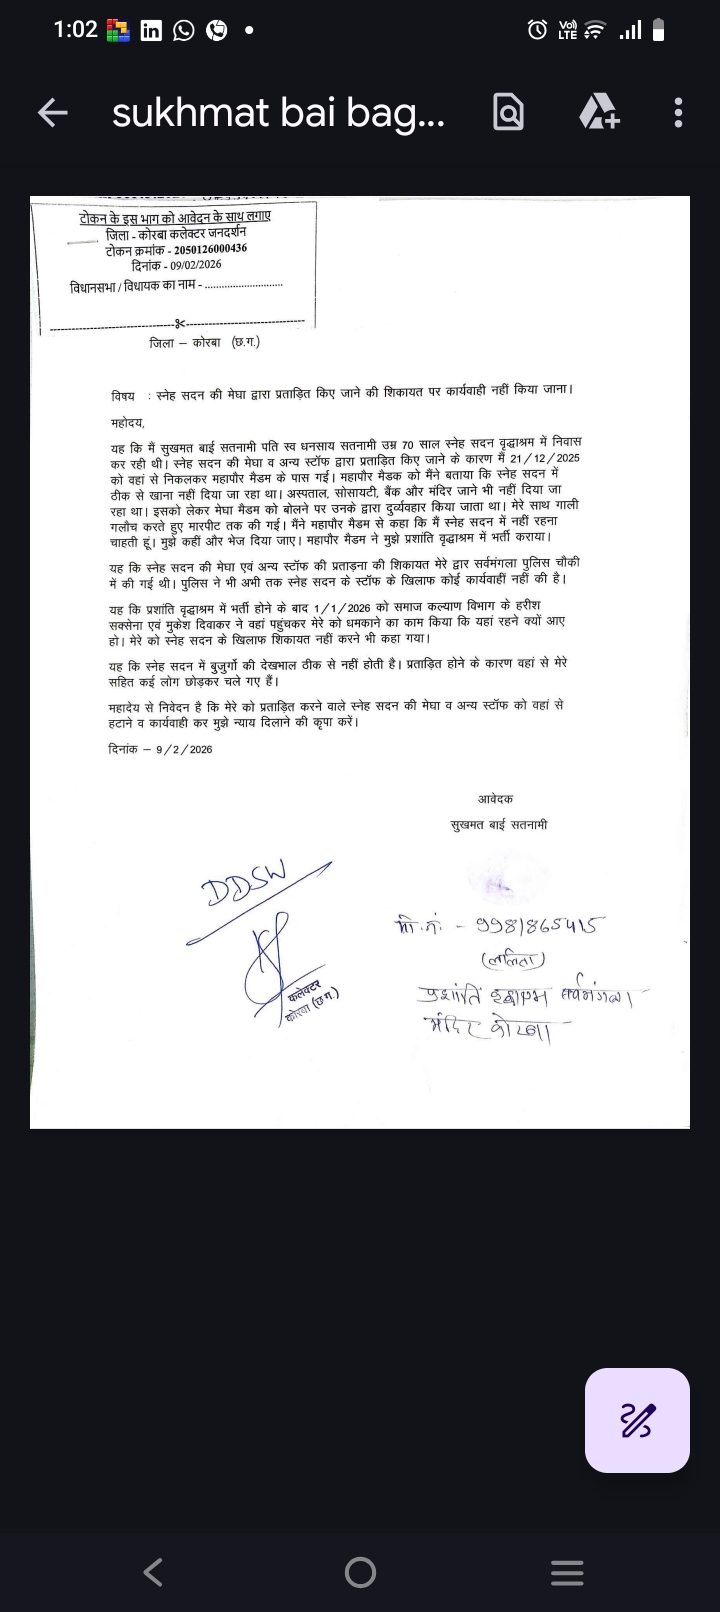 1:02
Vo)) LTE
sukhmat bai bag...
टोकन के इस भाग को आवेदन के साथ लगाए
जिला - कोरबा कलेक्टर जनदर्शन
टोकन क्रमांक - 2050126000436
दिनांक - 09/02/2026
विधानसभा / विधायक का नाम - ...........................
जिला – कोरबा (छ.ग.)
विषय : स्नेह सदन की मेघा द्वारा प्रताड़ित किए जाने की शिकायत पर कार्यवाही नहीं किया जाना।
महोदय,
यह कि मैं सुखमत बाई सतनामी पति स्व धनसाय सतनामी उम्र 70 साल स्नेह सदन वृद्धाश्रम में निवास
कर रही थी। स्नेह सदन की मेघा व अन्य स्टॉफ द्वारा प्रताड़ित किए जाने के कारण मैं 21/12/2025
को वहां से निकलकर महापौर मैडम के पास गई। महापौर मैडक को मैंने बताया कि स्नेह सदन में
ठीक से खाना नहीं दिया जा रहा था। अस्पताल, सोसायटी, बैंक और मंदिर जाने भी नहीं दिया जा
रहा था। इसको लेकर मेघा मैडम को बोलने पर उनके द्वारा दुर्व्यवहार किया जाता था। मेरे साथ गाली
गलौच करते हुए मारपीट तक की गई। मैंने महापौर मैडम से कहा कि मैं स्नेह सदन में नहीं रहना
चाहती हूं। मुझे कहीं और भेज दिया जाए। महापौर मैडम ने मुझे प्रशांति वृद्धाश्रम में भर्ती कराया।
यह कि स्नेह सदन की मेघा एवं अन्य स्टॉफ की प्रताड़ना की शिकायत मेरे द्वार सर्वमंगला पुलिस चौकी
में की गई थी। पुलिस ने भी अभी तक स्नेह सदन के स्टॉफ के खिलाफ कोई कार्यवाहीं नहीं की है।
यह कि प्रशांति वृद्धाश्रम में भर्ती होने के बाद 1/1/2026 को समाज कल्याण विभाग के हरीश
सक्सेना एवं मुकेश दिवाकर ने वहां पहुंचकर मेरे को धमकाने का काम किया कि यहां रहने क्यों आए
हो। मेरे को स्नेह सदन के खिलाफ शिकायत नहीं करने भी कहा गया।
यह कि स्नेह सदन में बुजुर्गो की देखभाल ठीक से नहीं होती है। प्रताड़ित होने के कारण वहां से मेरे
सहित कई लोग छोड़कर चले गए हैं।
महादेय से निवेदन है कि मेरे को प्रताड़ित करने वाले स्नेह सदन की मेघा व अन्य स्टॉफ को वहां से
हटाने व कार्यवाही कर मुझे न्याय दिलाने की कृपा करें।
दिनांक – 9/2/2026
आवेदक
सुखमत बाई सतनामी
DDSW
मो.नं. - 9981865415
(ललिता)
कलेक्टर
कोरबा (छ.ग.)
प्रशांति वृद्धाश्रम सर्वमंगला
मंदिर कोरबा